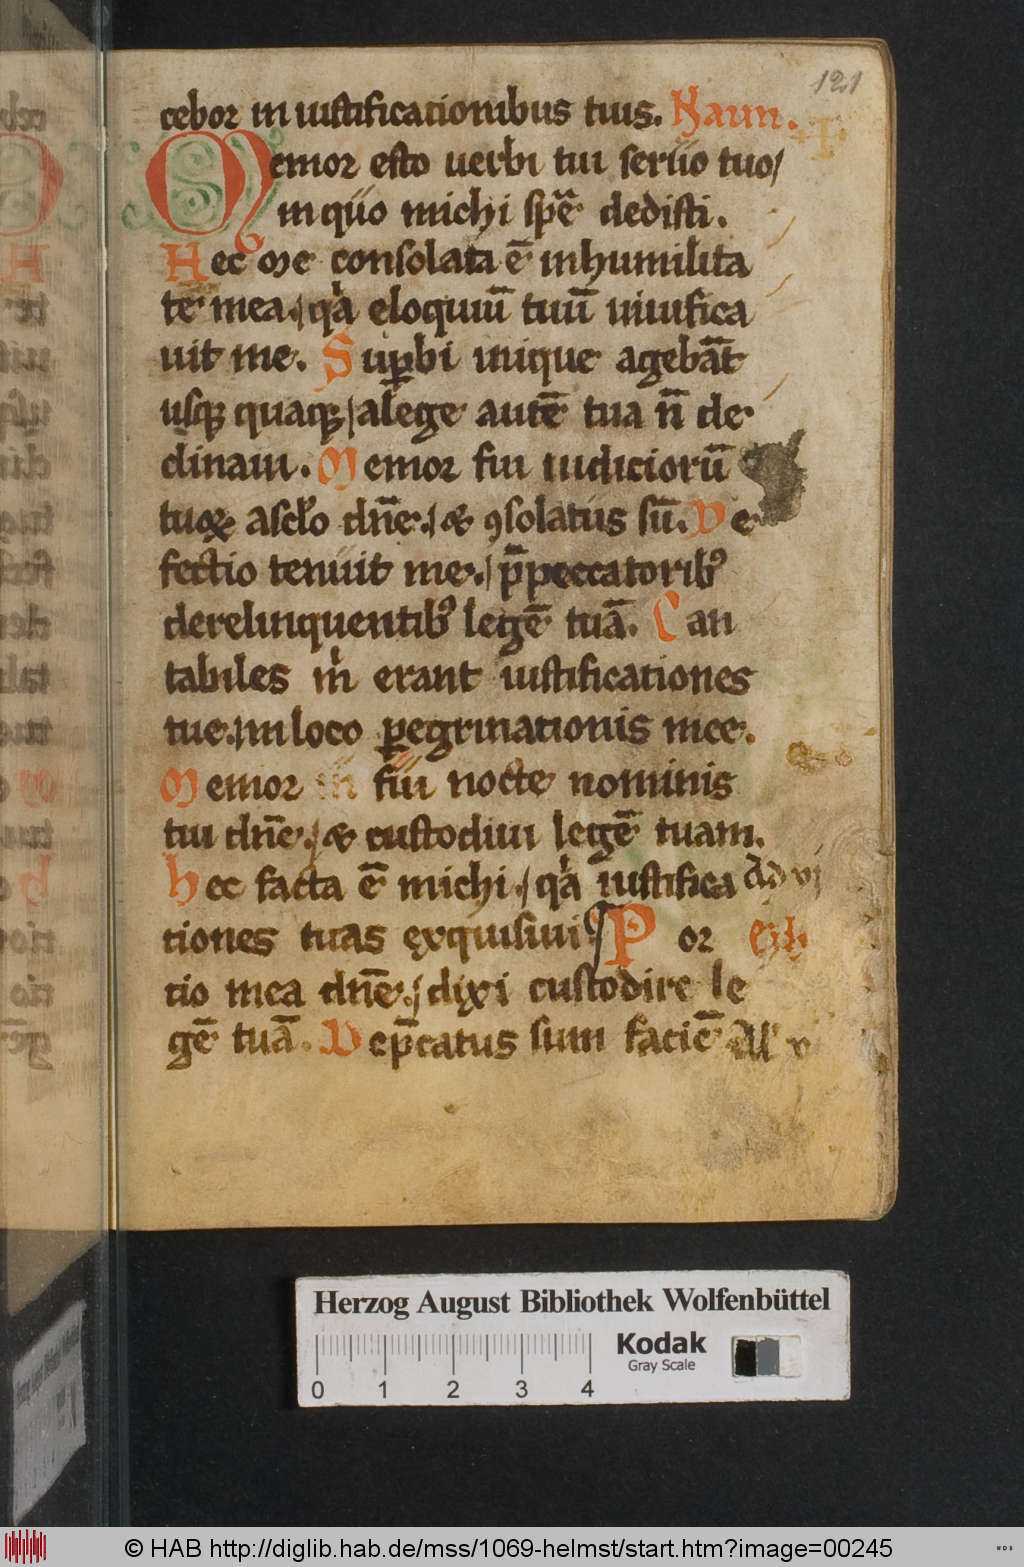 121
cebor in iustificationibus tuis. Naun.
Memor esto uerbi tui seruo tuo/
in quo michi spē dedisti.
Hec me consolata ē in humilita
te mea. qͥa eloquiū tuū uiuifica
uit me. Suꝑbi inique agebāt
usqꝫ quaqꝫ a lege autē tua n̄ de
clinaui. Memor fui iudiciorū
tuoꝝ a sclo dn̄e. & ꝯsolatus sū. De
fectio tenuit me. p̄ peccatoribꝰ
derelinquentibꝰ legē tuā. Can
tabiles mͥ erant iustificationes
tue. in loco ꝑegrinationis mee.
Memor fui nocte nominis
tui dn̄e. & custodiui legē tuam.
Hec facta ē michi. qͥa iustifica
Ad vi
tiones tuas exquisiui Por
tio mea dn̄e. dixi custodire le
gē tuā. Dep̄catus sum faciē
Herzog August Bibliothek Wolfenbüttel
Kodak
Gray Scale
0 1 2 3 4
© HAB http://diglib.hab.de/mss/1069-helmst/start.htm?image=00245